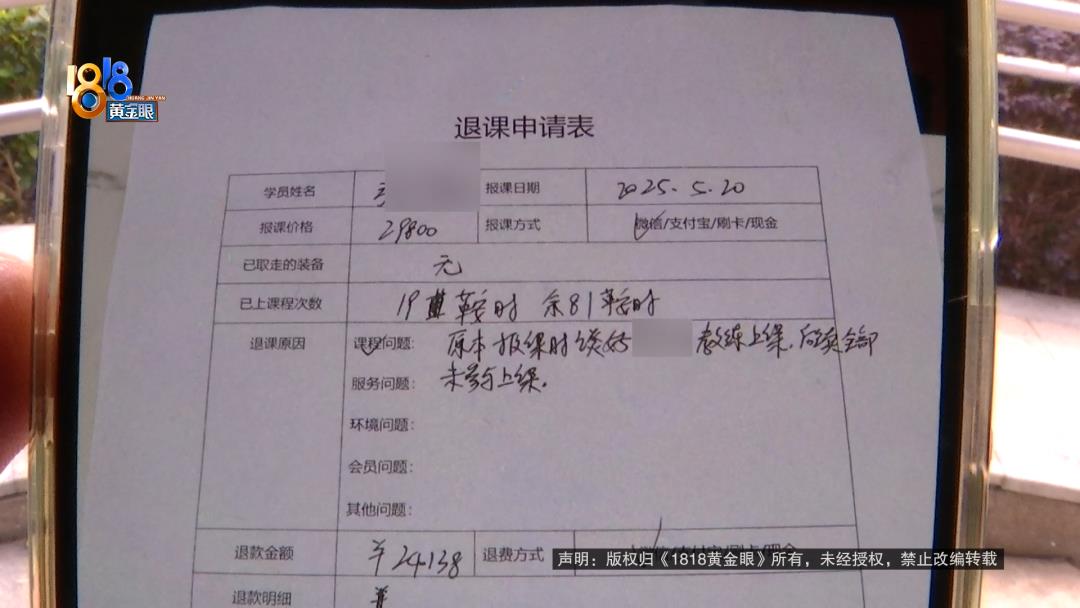 1818
HUANG JIN YAN
黄金眼
退课申请表
学员姓名 报课日期 2025.5.20
报课价格 29800 报课方式 微信/支付宝/刷卡/现金
已取走的装备 无
已上课程次数 19 鞍时 余81鞍时
退课原因 课程问题: 原本报课时谈好 教练上课,后续全部
服务问题: 未参与上课.
环境问题:
会员问题:
其他问题:
退款金额 ¥24138 退费方式
声明:版权归《1818黄金眼》所有,未经授权,禁止改编转载
退款明细